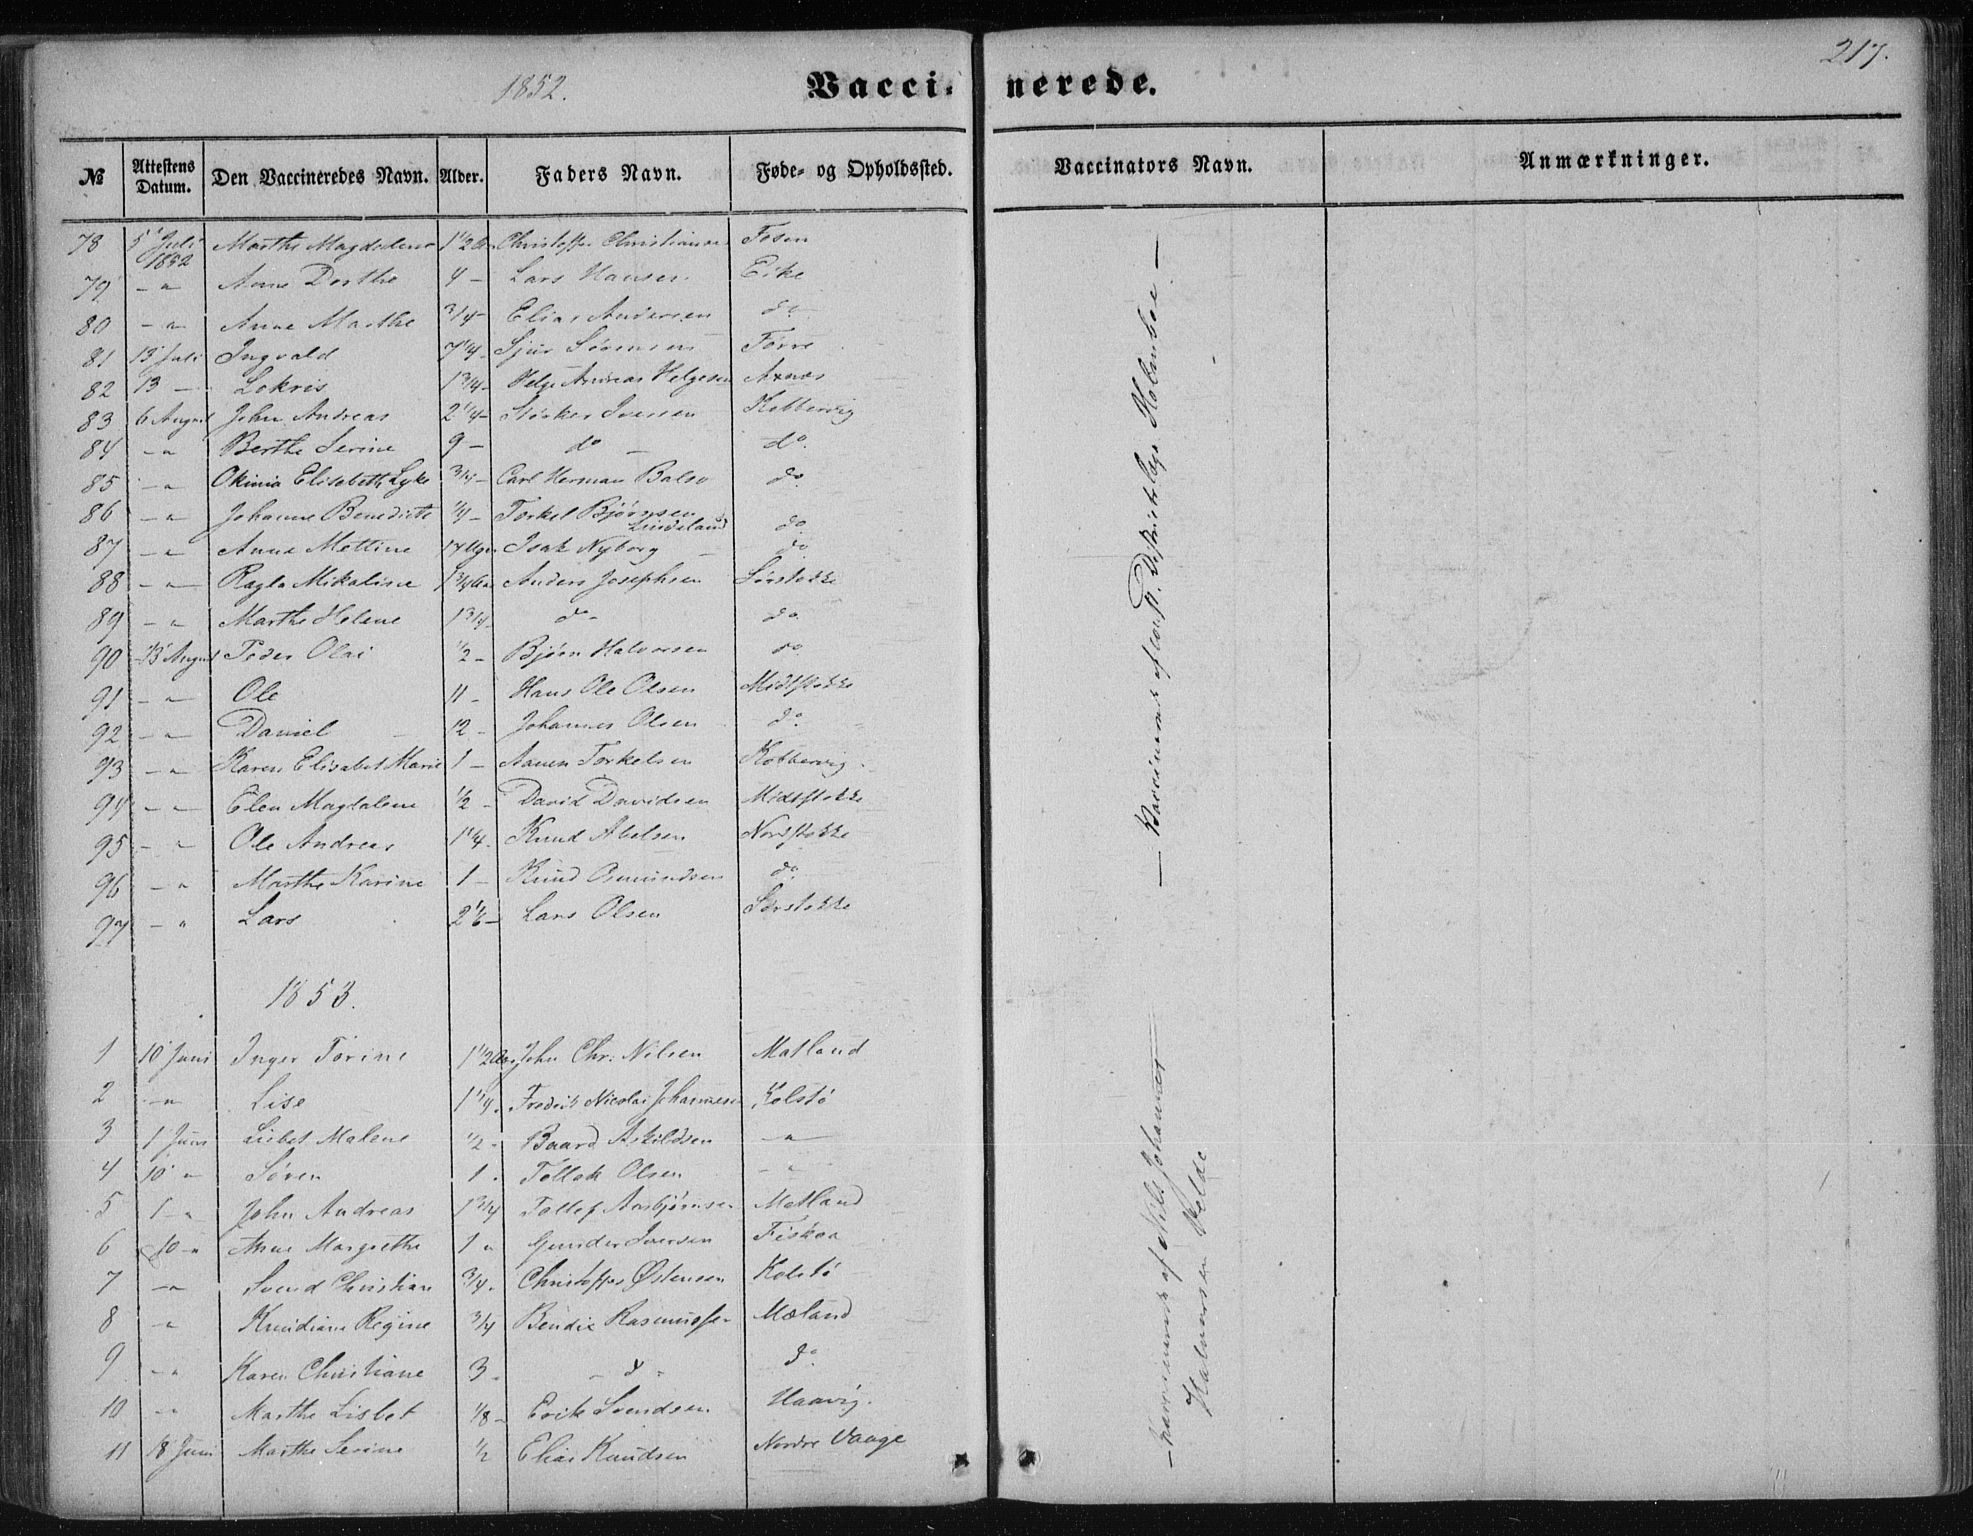 1852. Vaccinerede. 217.
№ Attestens Datum. Den Vaccineredes Navn. Alder. Faders Navn. Føde- og Opholdssted. Vaccinators Navn. Anmærkninger.
78 5 Juli 1852 Marthe Magdalena 1 1/2 Christoffer Christiansen Fosen
79 - " Anne Dorthe 4 - Lars Hansen Eike
80 - " Anne Marthe 3/4 - Elias Andersen do
81 13 Juli Ingvald 7 1/4 - Sjur Sørensen Førre
82 13 - Lokris 1 3/4 - Helge Andreas Helgesen Axnæs
83 6 August John Andreas 2 1/4 - Størker Iversen Kobbervig
84 - " Berthe Serine 9 - do - do.
85 - " Okinia Elisabeth Lyke 3/4 - Carl Herman Balso do
86 - " Johanne Benedicte 1/4 - Torkel Bjørnsen Lindeland do
87 - " Anne Mettine 14 Uger Isak Nyborg - do
88 - " Ragla Mikaline 1 3/4 Aar Anders Josephsen Sørstokke
89 - " Marthe Helene 1 3/4 - do - do.
90 13 August Peder Olai 1/2 - Bjørn Halvorsen do
91 - " Ole 11 - Hans Ole Olsen Midtstokke
92 - " Daniel 12 - Johannes Olsen do.
93 - " Karen Elisabet Marie 1 - Aanen Torkelsen Kobbervig
94 - " Elen Magdalene 1/2 - David Davidsen Midtstokke
95 - " Ole Andreas 1 1/4 - Knud Abelsen Nordstokke
96 - " Marthe Karine 1 - Knud Osmundsen do.
97 - " Lars 2 1/6 - Lars Olsen Sørstokke
— Vaccinerede af const. Districtslæge Holmboe —
1853.
1 10 Juni Inger Torine 1 1/2 Aar John Chr. Nilsen Matland
2 - " Lise 1 1/4 - Fredrik Nicolai Johannesen Kolstø
3 1 Juni Lisbet Malene 1/2 - Baard Askildsen - " -
4 10 " Søren 1 - Tollak Olsen - "
5 1 - " John Andreas 1 3/4 Tollef Asbjørnsen Matland
6 10 - " Anne Margrethe 1 " Gunder Iversen Fiskaa
7 - " Svend Christian 3/4 - Christoffer Østensen Kolstø
8 - " Knudiane Regine 3/4 Bendix Rasmussen Mæland
9 - " Karen Christiane 3 - - do - do.
10 - " Marthe Lisbet 1/8 - Erik Svendsen Haavig.
11 18 Juni Marthe Serine 1/2 Elias Knudsen Nordre Vaage
— vaccinerede af Nils Johannes
Halvorsen Velde